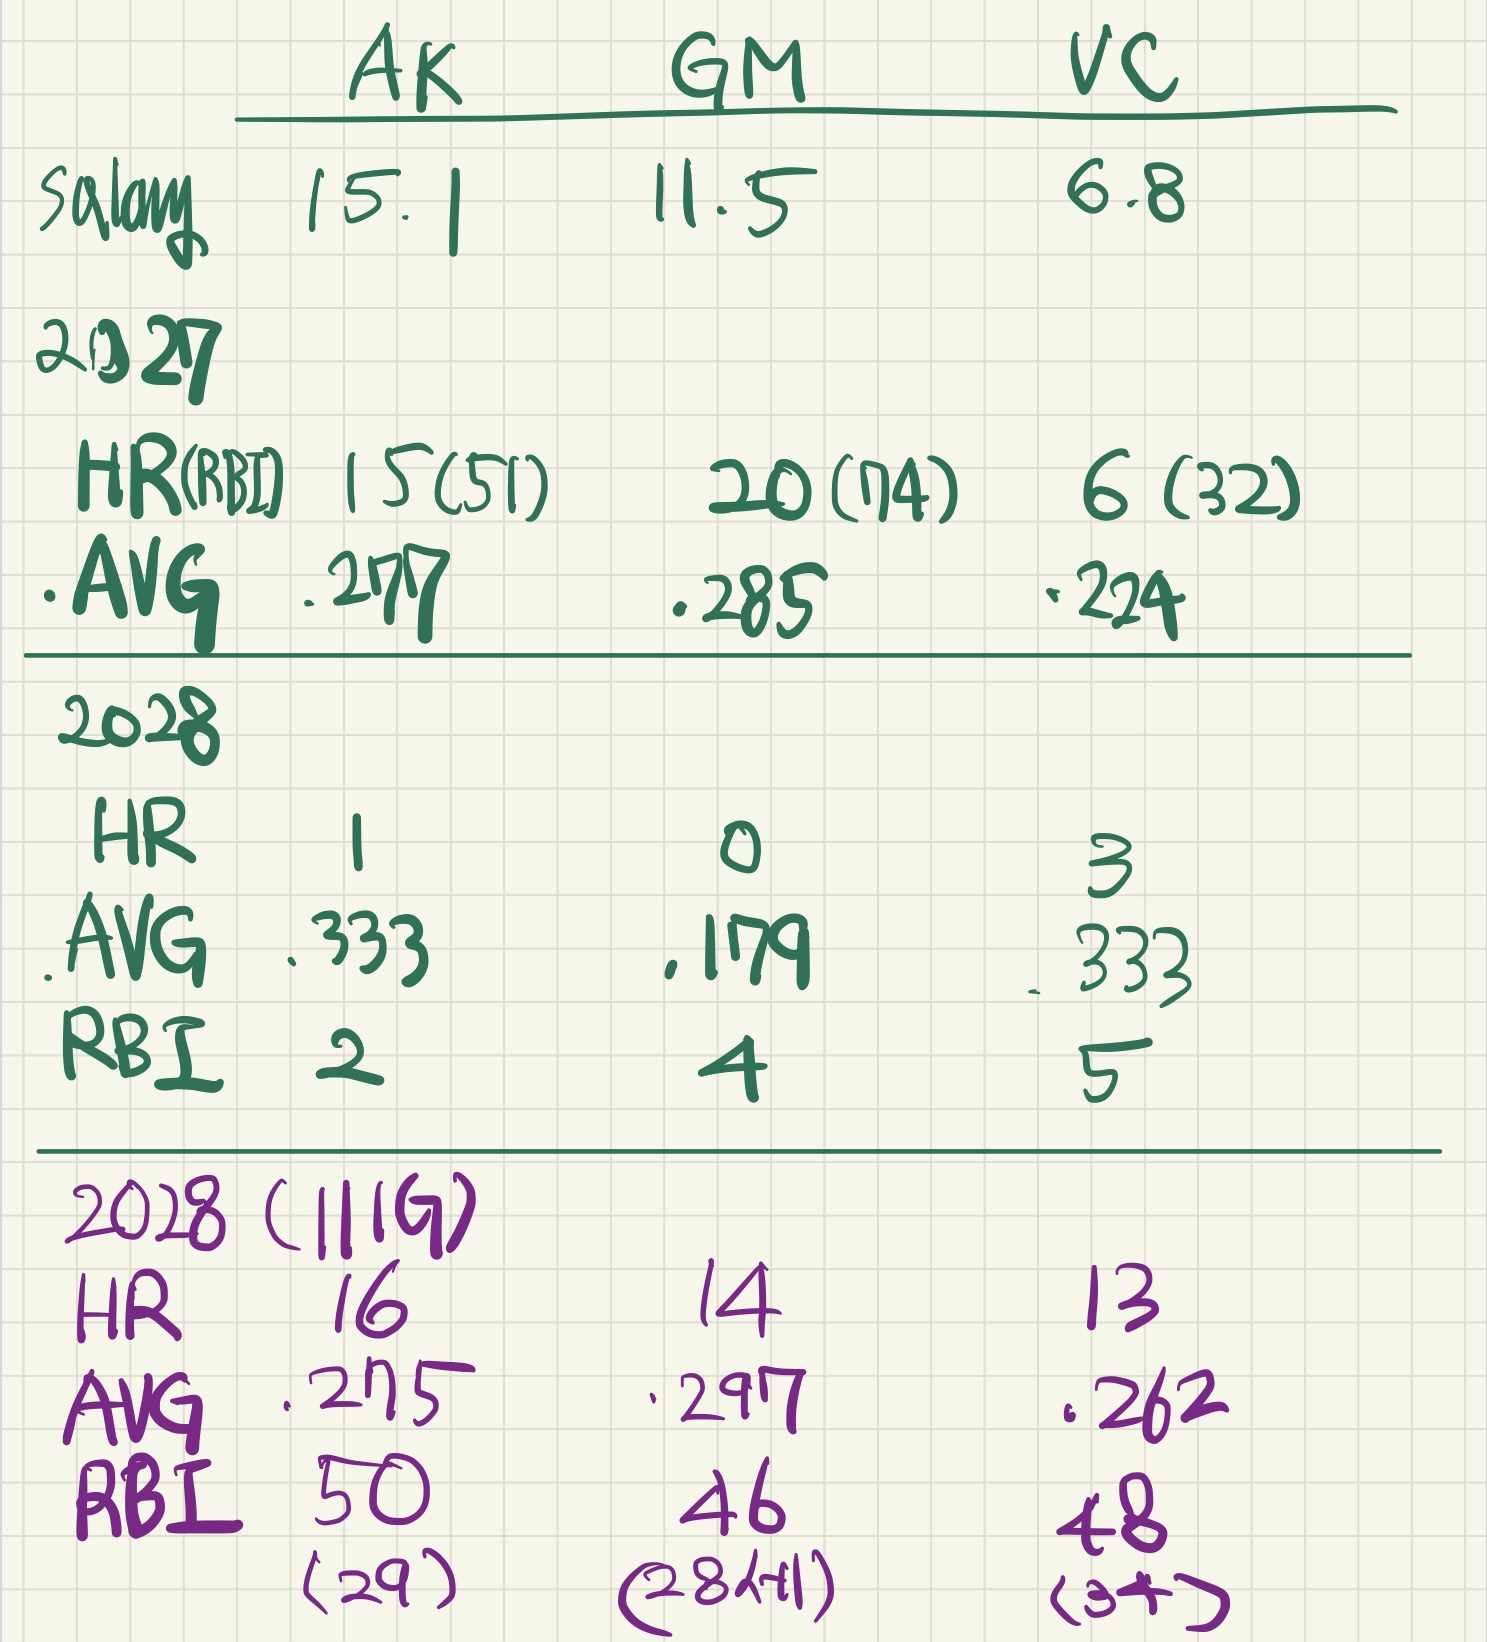 AK GM VC
Salary 15.1 11.5 6.8
2027
HR(RBI) 15(51) 20(74) 6(32)
.AVG .277 .285 .224
2028
HR 1 0 3
.AVG .333 .179 .333
RBI 2 4 5
2028 (111G)
HR 16 14 13
AVG .275 .297 .262
RBI 50 46 48
(29) (28 (34)